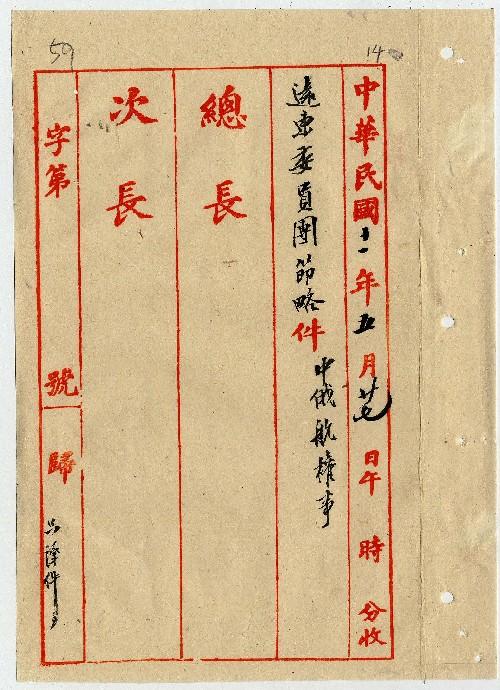 14
59
中華民國十一年五月廿七日午 時 分收
遠東委員團節略件
中俄航權事
總長
次長
字第 號 歸